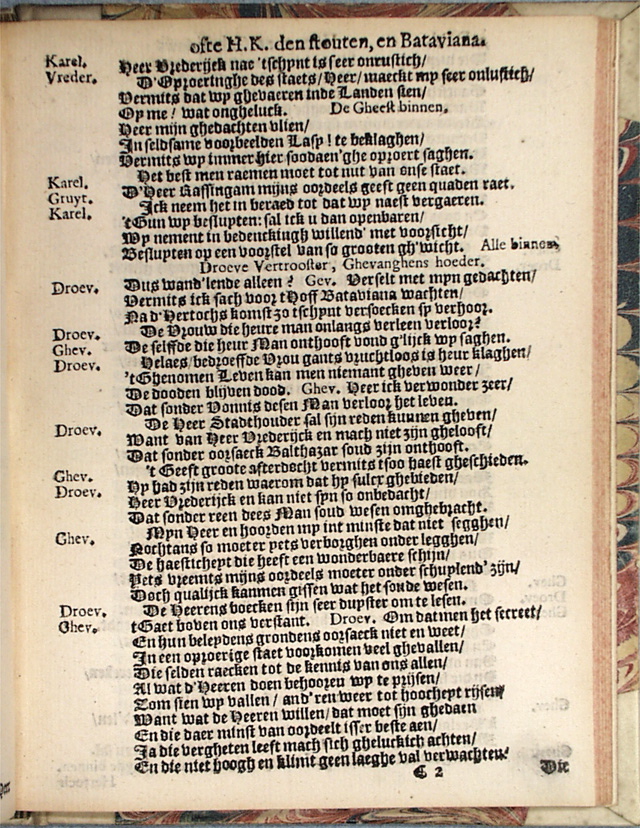 ofte H.K. den stouten, en Bataviana.
Karel. Heer Vrederijck nae 'tschynt is seer onrustich/
Vreder. D'Oproeringhe des staets/Heer/maeckt my seer onlustich/
Vermits dat wy ghevaeren inde Landen sien/
Op me! wat ongheluck. De Gheest binnen.
Heer mijn ghedachten vlien/
In seldsame voorbeelden Lasy! te beklaghen/
Vermits wy immer hier soodaen'ghe oproert saghen.
Het best men raemen moet tot nut van onse staet.
Karel. D'Heer Gassingam mijns oordeels geeft geen quaden raet.
Gruyt. Ick neem het in beraed tot dat wy naest vergaeren.
Karel. 'tGun wy besluyten: sal ick u dan openbaren/
Wy nement in bedenckingh willend' met voorsicht/
Besluyten op een voorstel van so grooten gh'wicht. Alle binnen.
Droeve Vertrooster, Ghevanghens hoeder.
Droev. Dus wand'lende alleen? Gev. Verselt met myn gedachten/
Vermits ick sach voor tHoff Bataviana wachten/
Na d'Hertochs komst zo tschynt versoecken sy verhoor.
Droev. De Vrouw die heure man onlangs verleen verloor?
Ghev. De selffde die heur Man onthooft vond g'lijck wy saghen.
Droev. Helaes/bedroeffde Vrou gants vruchtloos is heur klaghen/
'tGhenomen Leven kan men niemant gheven weer/
De dooden blijven dood. Ghev. Heer ick verwonder zeer/
Dat sonder Vonnis desen Man verloor het leven.
De Heer Stadthouder sal sijn reden kunnen gheven/
Droev. Want van Heer Vrederijck en mach niet zijn ghelooft/
Dat sonder oorsaeck Balthazar soud zijn onthooft.
't Geeft groote afterdecht vermits tsoo haest gheschieden.
Ghev. Hy had zijn reden waerom dat hy sulcx ghebieden/
Droev. Heer Vrederijck en kan niet syn so onbedacht/
Dat sonder reen dees Man soud wesen omghebracht.
Myn Heer en hoorden my int minste dat niet segghen/
Ghev. Nochtans so moeter yets verborghen onder legghen/
De haesticheyt die heeft een wonderbaere schijn/
Yets vreemts mijns oordeels moeter onder schuylend' zijn/
Doch qualijck kanmen gissen wat het soude wesen.
Droev. De Heerens boecken sijn seer duyster om te lesen.
Ghev. tGaet boven ons verstant. Droev. Om datmen het secreet/
En hun beleydens grondens oorsaeck niet en weet/
In een oproerige staet voorkomen veel ghevallen/
Die selden raecken tot de kennis van ons allen/
Al wat d'Heeren doen behooren wy te prijsen/
Som sien wy vallen/ and'ren weer tot hoocheyt rijsen/
Want wat de Heeren willen/dat moet sijn ghedaen
En die daer minst van oordeelt isser beste aen/
Ja die vergheten leeft mach sich gheluckich achten/
En die niet hoogh en klimt geen laeghe val verwachten.
C 2 Die